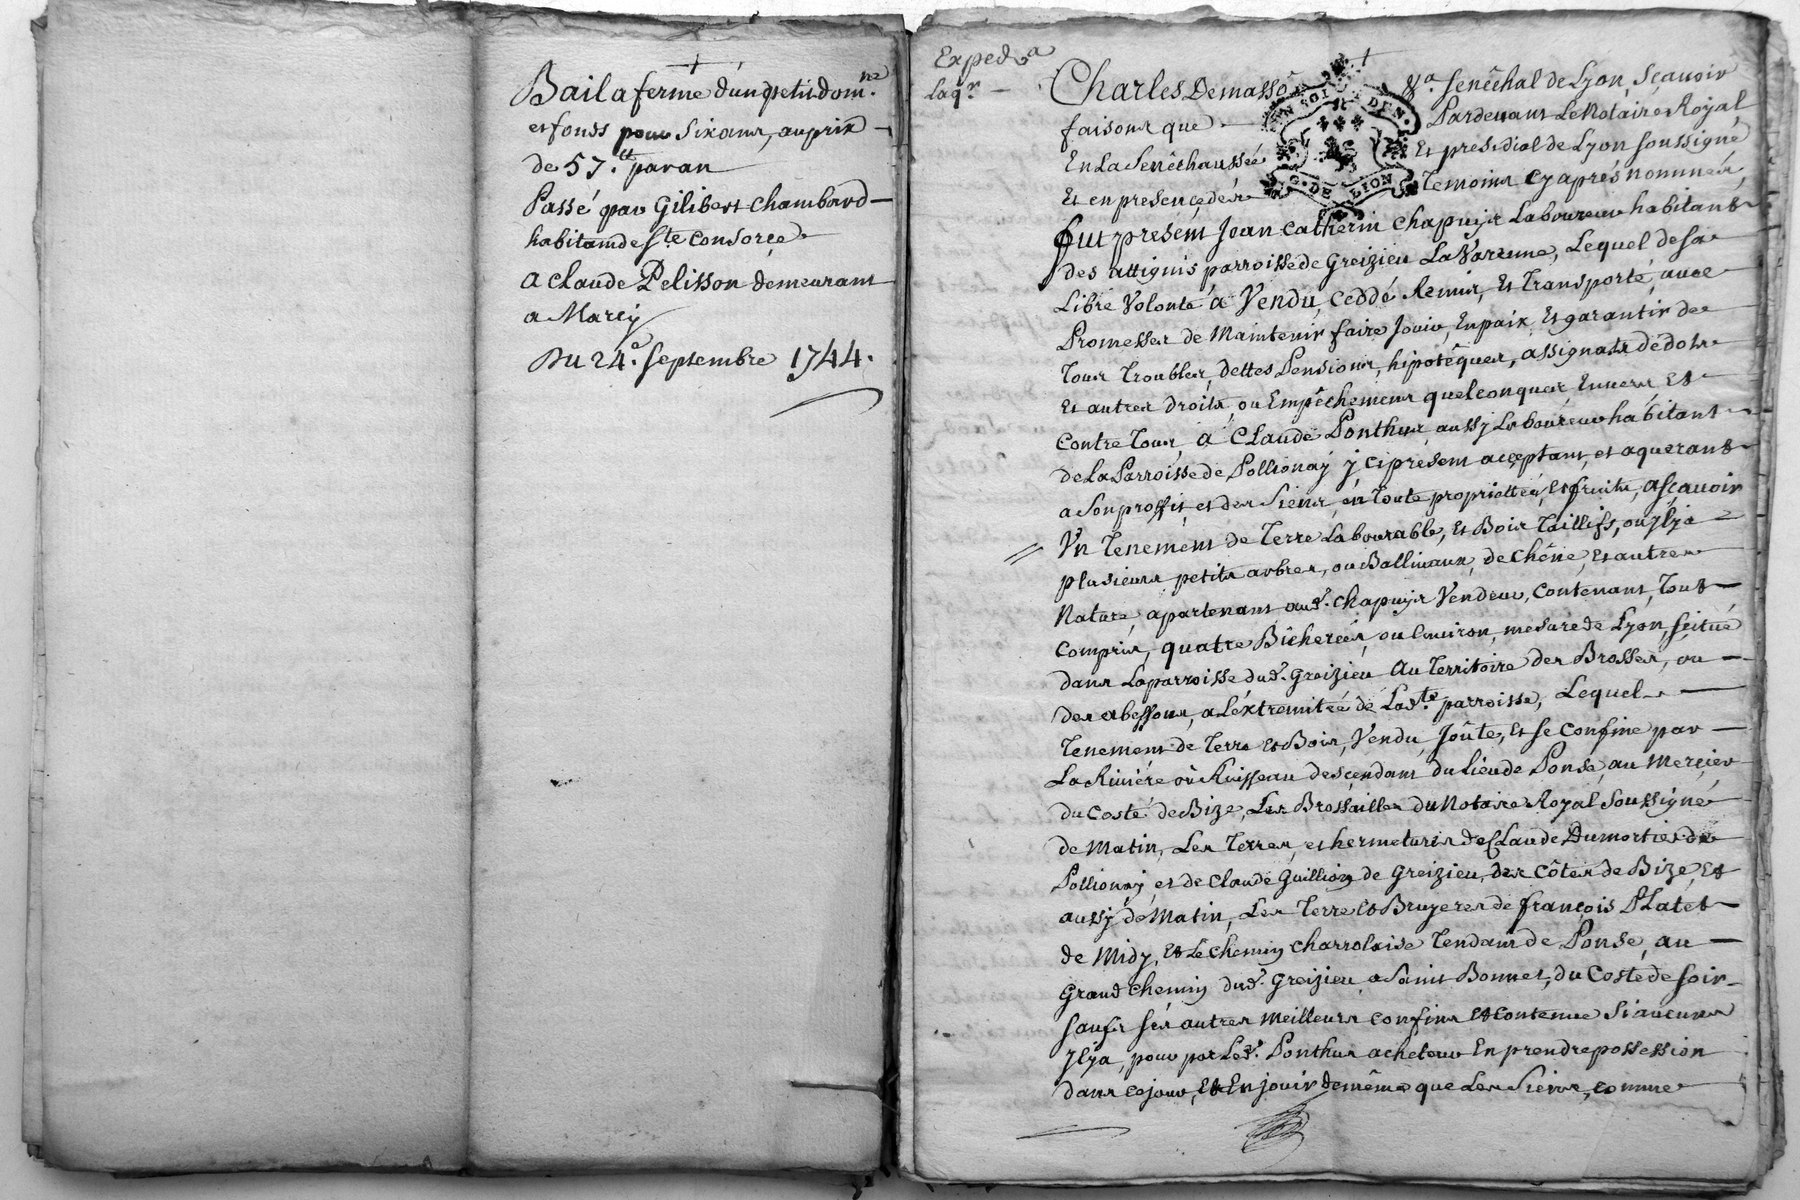 Bail a ferme d'un petit dom.ne
et fonds pour six ans, au prix
de 57.tt par an
Passé par Gilibert Chambard
habitant de Ste Consorce
a Claude Pelisson demeurant
a Marcy
Du 24e. septembre 1744.
Exped.a
laqr.
Charles Demasso Sénéchal de Lyon, Sçavoir
faisons que Pardevant Le Notaire Royal
En La Senêchaussée Et presidial de Lyon soussigné
Et en presence des Temoins cy aprés nommés,
GEN SOL DEN. G. DE LION
fut présent Jean Catherin Chapuys Laboureur habitant
des attignis parroisse de Greizieu La Varenne, Lequel de sa
Libre Volonté a Vendu, Ceddé Remis, Et Transporté, avec
Promesses de Maintenir faire Jouir, En paix Et garantir de
Tous Troubles, dettes Pensions, hipotêques, assignats de dots
Et autres droits, ou Empêchemens quelconques Envers Et
Contre Tous, à Claude Ponthus aussy Laboureur habitant
de La Parroisse de Pollionay y ci present acceptant, et aquerant
a Son proffit et des Siens, en Toute proprietté, Et fruits, asçavoir
Un Tenement de Terre Labourable, Et Bois Taillifs, ou Il y a
plusieurs petits arbres, ou Balliveaux, de Chêne, Et autre
Nature, apartenant aud. Chapuys Vendeur, Contenant, Tout
Compris, quatre Bicherées, ou Environ, mesure de Lyon, scitué
dans La parroisse dud. Greizieu Au Territoire des Brosses, ou
des abessons, a L'éxtremitée de Lad.te parroisse, Lequel
Tenement de Terre Et Bois, Vendu, Joûte, Et se Confine par
La Riviére ou Ruisseau descendant du lieu de Ponse, au Mercier
du Costé de Bize, Les Brossailles du Notaire Royal Soussigné
de Matin, Les Terres, et hermetures de Claude Dumortier de
Pollionay et de Claude Guillion de Greizieu, des Côtés de Bize, Et
aussy de Matin, Les Terre Et Bruyeres de françois Platet
de Midy, Et Le Chemin Charrolaise Tendant de Ponse, au
Grand Chemin dud. Greizieu a Saint Bonnet, du Costé de soir
Saufs ses autres Meilleurs confins Et Contenue Si aucuns
Il y a, pour par Led. Ponthus acheteur En prendre possession
dans ce jour, Et En jouir de même que Les Siens, comme